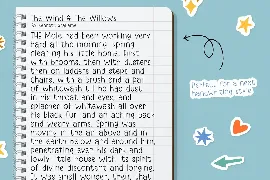 The Wind & The Willows
By Kenneth Grahame
The Mole had been working very
hard all the morning, spring
cleaning his little home. First
with brooms, then with dusters;
then on ladders and steps and
chairs, with a brush and a pail
of whitewash; till he had dust
in his throat and eyes, and
splashes of whitewash all over
his black fur, and an aching back
and weary arms. Spring was
moving in the air above and in
the earth below and around him,
penetrating even his dark and
lowly little house with its spirit
of divine discontent and longing.
It was small wonder, then, that
Perfect for a neat
handwriting style